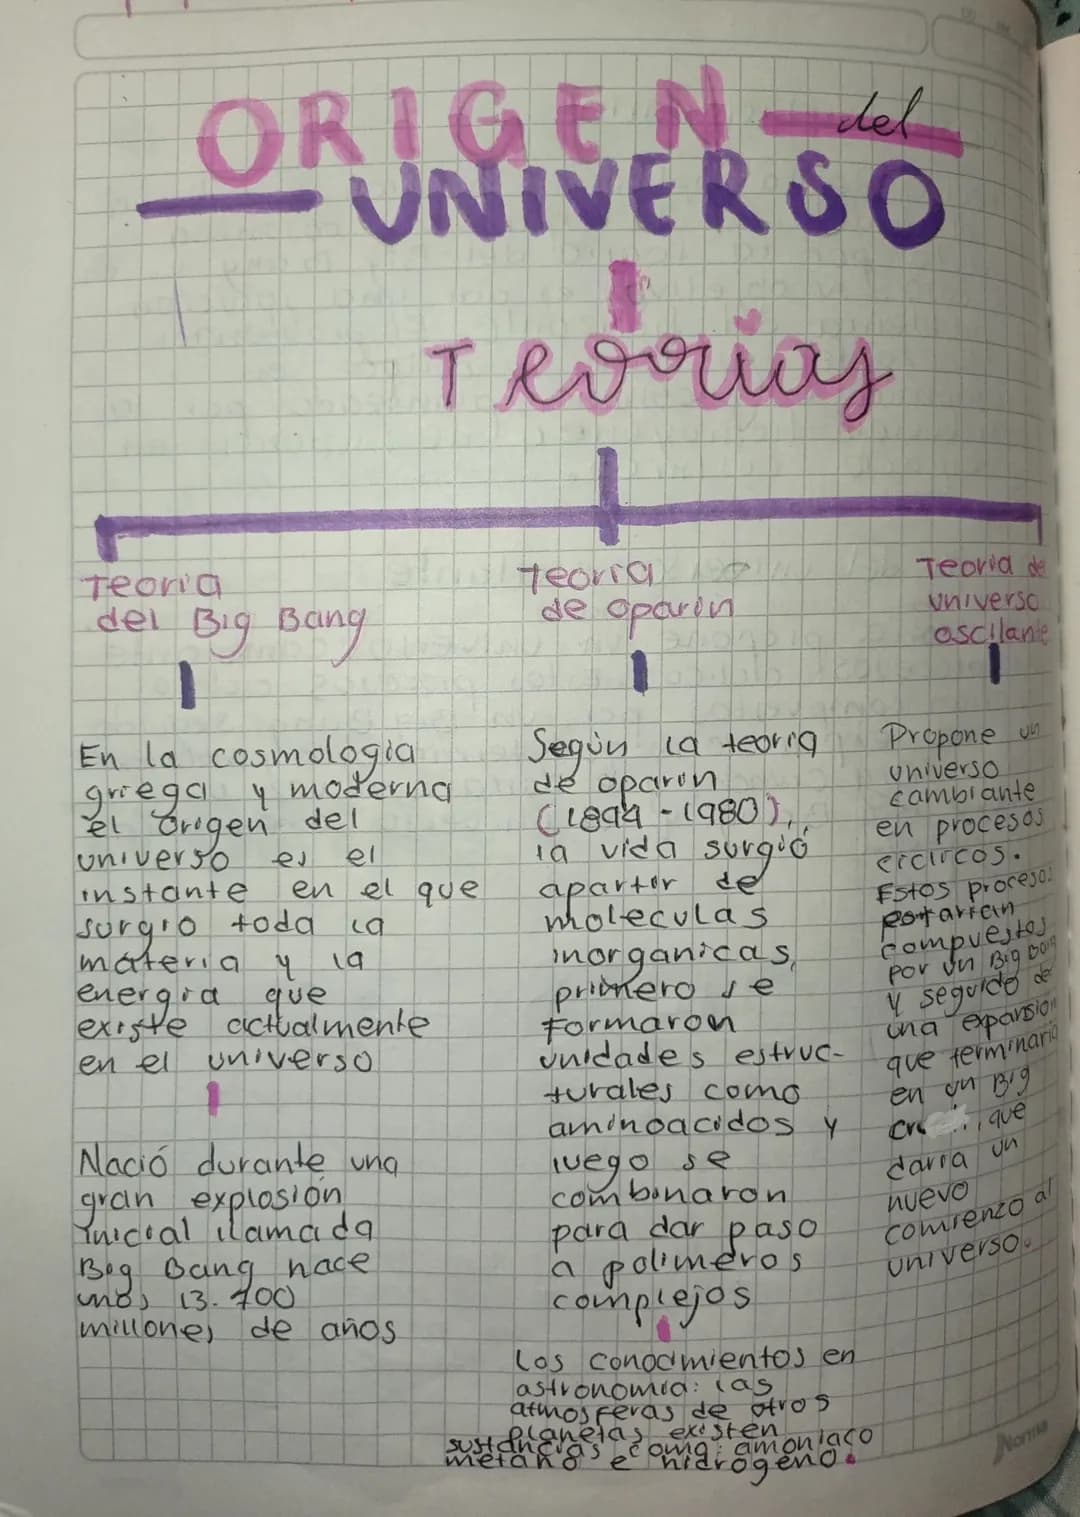 ORIGEN del
UNIVERSO
Teorias
Teoria
del Big Bang
En la cosmologia
griega y moderna
el origen del
universo es el
instante en el que
surgio toda la
materia y la
energia que
existe actualmente
en el universo
Nació durante una
gran explosión
inicial llamada
Big Bang hace
unos 13.700
millones de años
Teoria
de oparin
Según la teoria
de oparin
(1894-1980),
la vida surgió
apartir de
moleculas
inorganicas,
primero se
formaron
unidades estruc-
turales como
aminoacidos y
luego se
combinaron
para dar paso
a polimeros
complejos
Los conocimientos en
astronomia: las
atmosferas de otros
planetas existen
sustancias como: amoniaco
metano e hidrógeno.
Teoria de
universo
oscilante
Propone un
universo
cambiante
en procesos
ciclicos.
Estos procesos
estarian
compuestos
por un Big Bang
y seguido de
una expansion
que terminaria
en un Big
que
daria un
nuevo
comienzo al
universo.
Norma